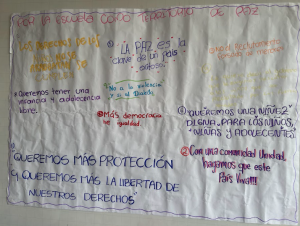 POR LA ESCUELA COMO TERRITORIO DE PAZ.
"LA PAZ es la
clave de un país
exitoso"
No a la violencia
y a la Deuda
*Queremos tener una
infancia y adolescencia
libre.
Más democracia
e igualdad
QUEREMOS UNA NIÑEZ
DIGNA PARA LOS NIÑOS,
NIÑAS Y ADOLECENTES"
QUEREMOS MÁS PROTECCIÓN
Y QUEREMOS MAS LA LIBERTAD DE
NUESTROS DERECHOS"
Con una comunidad Unidad,
hagamos que este
País Viva!!!